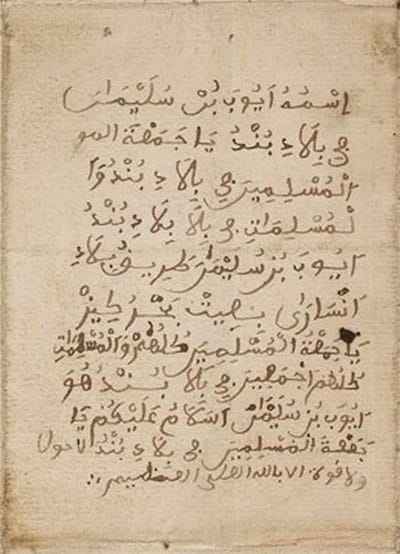 اِسْمُهُ اَيُوبَ بُنْ سُلَيْمَانَ
فِي بِلَادِ بُنْدُ يَا جَمَعَةَ المو
اَلْمُسْلِمِينَ فِي بِلَادِ بُنْدُ وَا
لْمُسْلِمَاتِ فِي بِلَادِ بُنْدُ
اَيُوبَ بُنْ سُلَيْمَانَ طَرِيقُ بِلَادِ
اَنْسَارَى
يَا جَمْعَةُ الْمُسْلِمِينَ كُلُّهُمْ وَالْمُسْلِمَاتِ
كُلُّهُمْ اَجْمَعِينَ فِي بِلَادِ بُنْدُ هُوَ
اَيُوبَ بُنْ سُلَيْمَانَ اَسَّلَامُ عَلَيْكُمْ يَا
جَمْعَةَ الْمُسْلِمِينَ فِي بِلَادِ بُنْدُ لا حول
ولا قوة الا بالله العلي العظيم